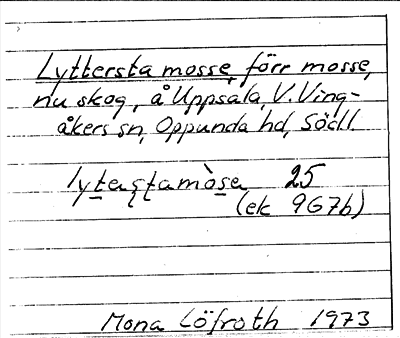 Lyttersta mosse, förr mosse,
nu skog, å Uppsala, V. Ving-
åkers sn, Oppunda hd, Södl.
lytəʂʈamòsə 25
(ek 9G7b)
Mona Löfroth 1973